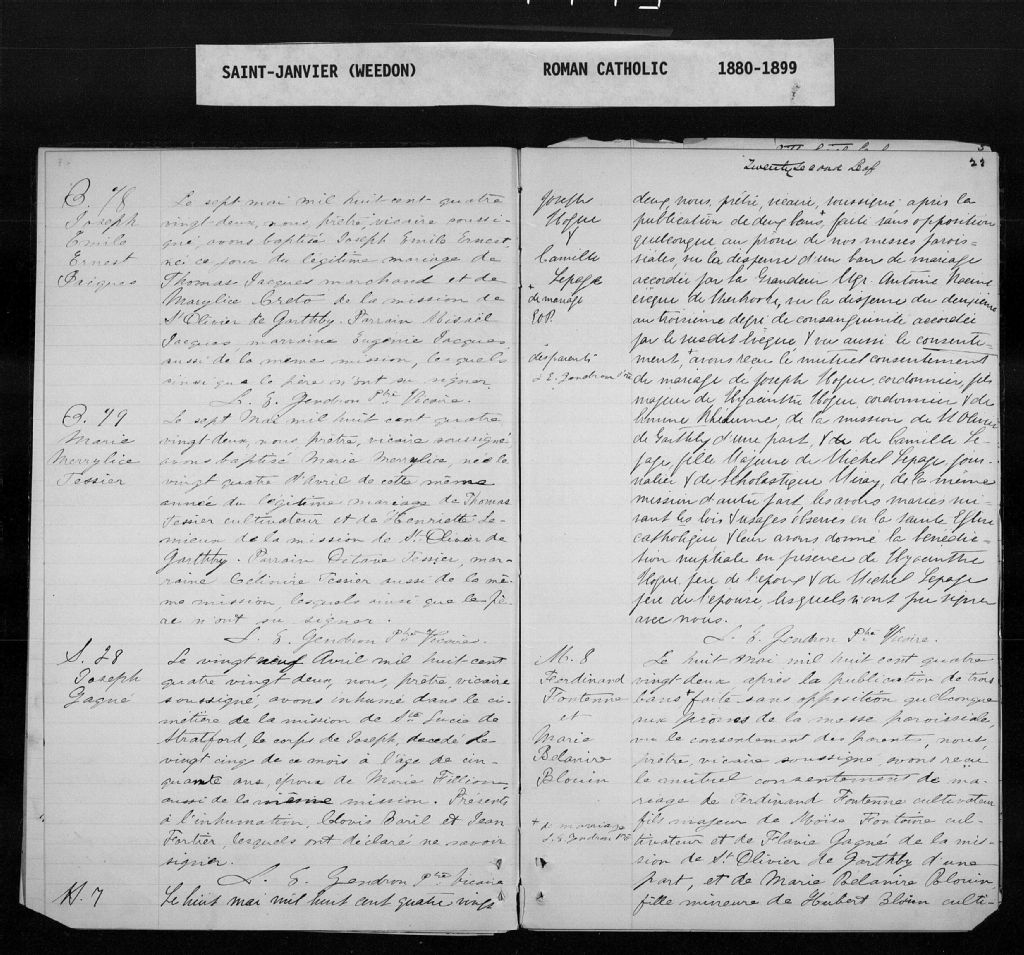 SAINT-JANVIER (WEEDON) ROMAN CATHOLIC 1880-1899
B. 48
Joseph
Emile
Ernest
Le sept mai mil huit cent quatre
vingt deux, nous, prêtre, vicaire soussi-
gné, avons baptisé Joseph Emile Ernest,
né ce jour du légitime mariage de
Thomas Jacques marchand et de
Marylice Creto de la mission de
St Olivier de Garthby. Parrain Misaël
Jacques marraine Eugenie Jacques,
aussi de la meme mission, lesquels
ainsi que le père n'ont su signer
L. E. Gendron Ptre Vicaire.
B. 49
Marie
Merrylice
Tessier
Le sept Mai mil huit cent quatre
vingt deux, nous prêtre, vicaire soussigné
avons baptisé Marie Merrylice, née le
vingt quatre d'Avril de cette même
année du légitime mariage de Thomas
Tessier cultivateur et de Henriette Le-
mieux de la mission de St Olivier de
Garthby. Parrain Tessier, mar-
raine Tessier aussi de la mê-
me mission, lesquels ainsi que le pè-
re n'ont su signer.
L. E. Gendron Ptre Vicaire.
S. 28
Joseph
Gagné
Le vingt neuf Avril mil huit cent
quatre vingt deux, nous, prêtre, vicaire
soussigné, avons inhumé dans le ci-
metière de la mission de Ste Lucie de
Stratford, le corps de Joseph, decedé le
vingt cinq de ce mois à l'âge de cin-
quante ans, epoux de Marie Fillion,
aussi de la même mission. Présents
à l'inhumation, Clovis Baril et Jean
Fortier, lesquels ont déclaré ne savoir
signer.
L. E. Gendron Ptre Vicaire
M. 7
Le huit mai mil huit cent quatre vingt
Twenty Second Leaf
22
Joseph
Hogue
&
Camille
Lepage
+ de mariage
des parents
L. E. Gendron Ptre
deux, nous, prêtre, vicaire, soussigné après la
publication de deux bans + faite sans opposition
quelconque au prône de nos messes parois-
siales, vu la dispense d'un ban de mariage
accordée par Sa Grandeur Mgr. Antoine Racine
évêque de Sherbrooke, vu la dispense du deuxième
au troisième degré de consanguinité accordée
par le susdit Evêque & vu aussi le consente-
ment, + avons reçu le mutuel consentement
de mariage de Joseph Hogue, cordonnier, fils
majeur de Hyacinthe Hogue, cordonnier & de
de la mission de St Olivier
de Garthby d'une part, & de de Camille Le-
page, fille Majeure de Michel Lepage jour-
nalier & de Scholastique Miray, de la même
mission d'autre part les avons mariés sui-
vant les lois & usages observés en la sainte Eglise
catholique & leur avons donné la bénédic-
tion nuptiale en présence de Hyacinthe
Hogue, père de l'époux & de Michel Lepage
père de l'épouse, lesquels n'ont pu signer
avec nous.
L. E. Gendron Ptre Vicaire.
M. 8
Ferdinand
Fontenne
et
Marie
Belanire
Blouin
+ de marriage
L. E. Gendron Ptre
Le huit Mai mil huit cent quatre
vingt deux après la publication de trois
bans + faite sans opposition quelconque
aux prônes de la messe paroissiale,
vu le consentement des parents, nous,
prêtre, vicaire soussigné avons reçu
le mutuel consentement de ma-
riage de Ferdinand Fontenne cultivateur
fils majeur de Moïse Fontenne cul-
tivateur et de Flavie Gagné de la mis-
sion de St Olivier de Garthby d'une
part, et de Marie Belanire Blouin
fille mineure de Hubert Blouin culti-